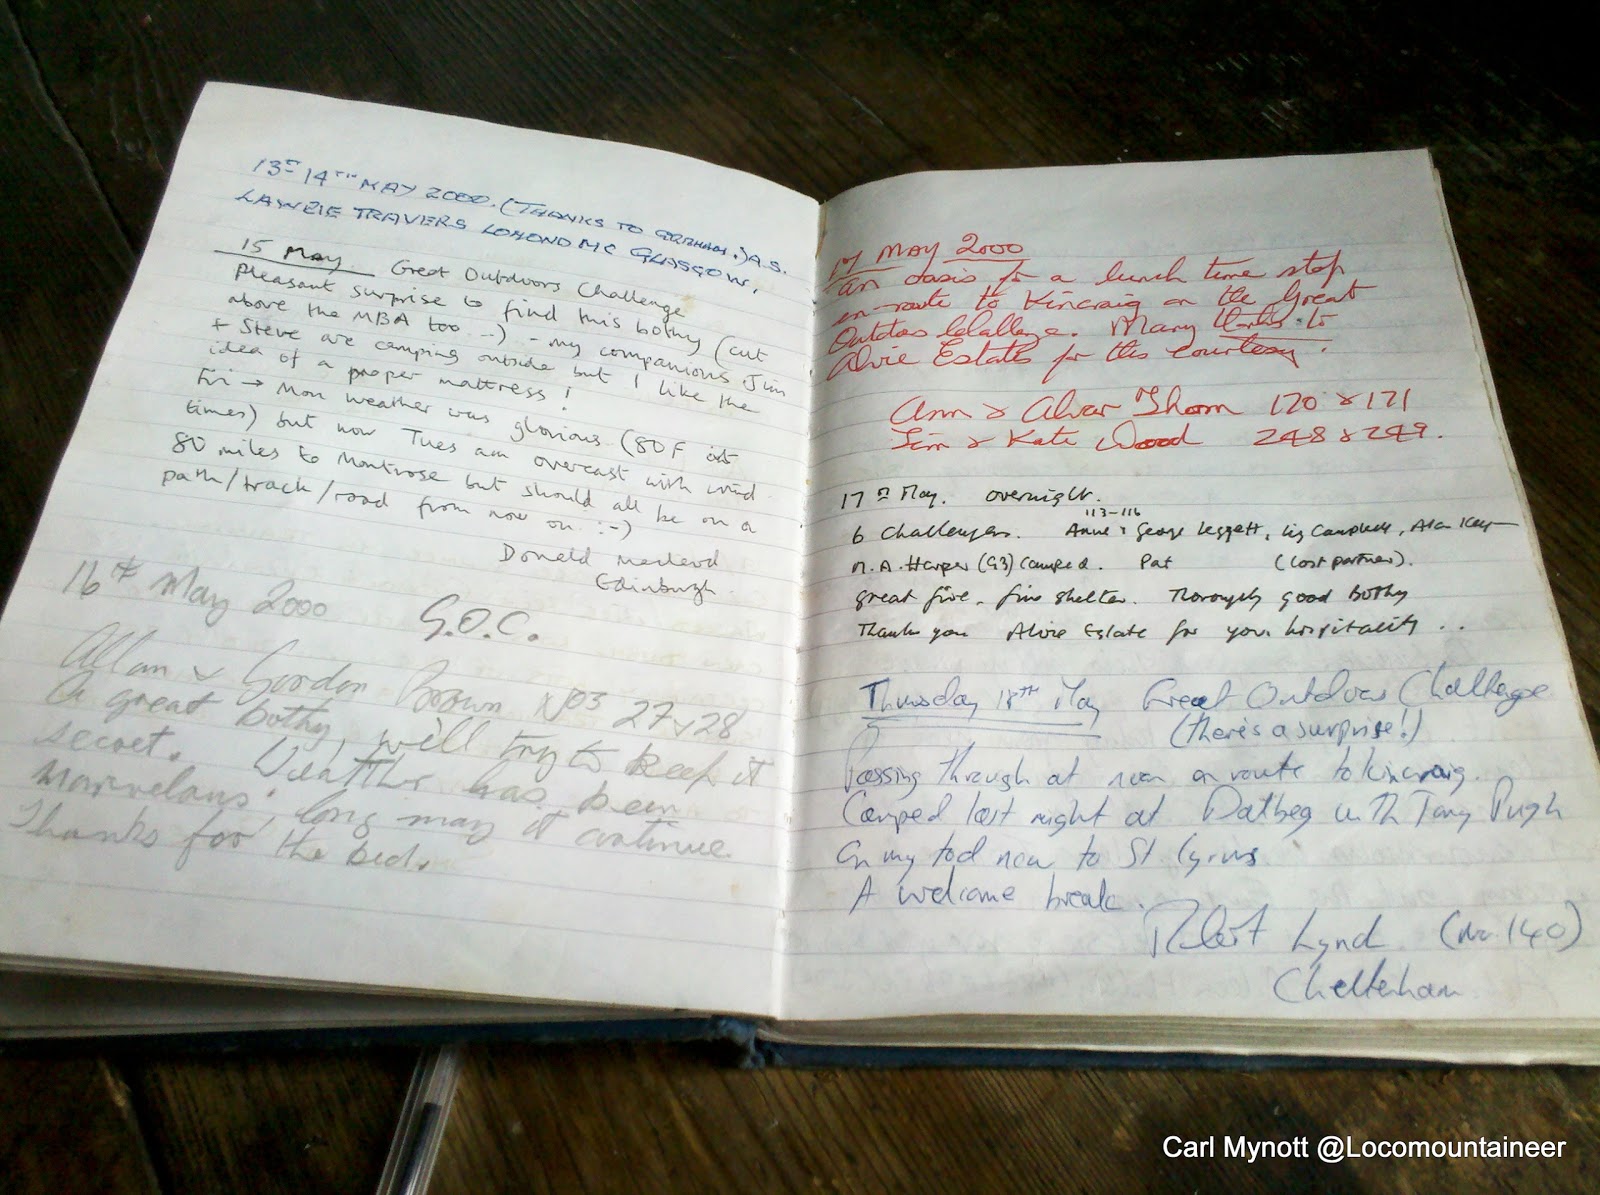 13TH 14TH MAY 2000. (THANKS TO GRAHAM.) A.S.
LAWRIE TRAVERS LOMOND MC GLASGOW.
15 May. Great Outdoors Challenge
Pleasant surprise to find this bothy (cut
above the MBA too :-) - my companions Jim
+ Steve are camping outside but I like the
idea of a proper mattress!
Fri → Mon weather was glorious (80F at
times) but now Tues am overcast with wind.
80 miles to Montrose but should all be on a
path/track/road from now on :-)
Donald Macleod
Edinburgh.
16th May 2000 G.O.C.
Allan & Gordon Brown Nos 27 & 28
A great bothy, will try to keep it
secret. Weather has been
marvelous, long may it continue.
Thanks for the bed.
17 May 2000
An oasis for a lunch time stop
en-route to Kincraig on the Great
Outdoors Challenge. Many thanks to
Alvie Estates for this courtesy.
Ann & Alvar Thorn 170 & 171
Jim & Kate Wood 248 & 249.
17th May. overnight.
113-116
6 Challengers. Anne & George Leggett, Liz Campbell, Alan Kay
M.A. Harper (93) camped. Pat (lost partner).
great fire, fine shelter. Thoroughly good Bothy
Thank you Alvie Estate for your hospitality ..
Thursday 18TH May Great Outdoors Challenge
(there's a surprise!)
Passing through at noon en route to Kincraig.
Camped last night at Dalbeg with Tony Pugh
On my tod now to St Cyrus
A welcome break.
Robert Lynd (No 140)
Cheltenham
Carl Mynott @Locomountaineer